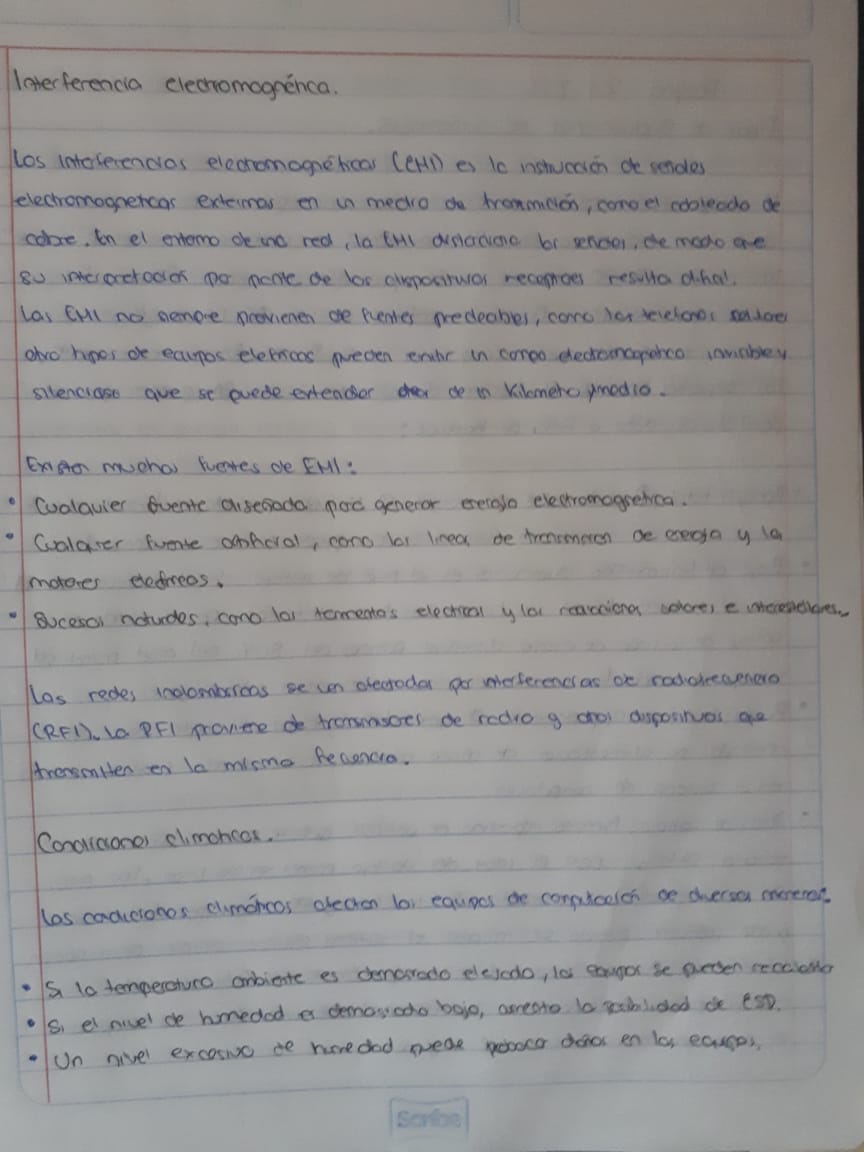 Interferencia electromagnética.
Las interferencias electromagnéticas (EMI) es la instrucción de señales
electromagneticas externas en un medio de trasmición, como el cableado de
cobre. En el entorno de una red, la EMI distorciona las señales, de modo que
su interpretación por parte de los dispositivos receptores resulta dificil.
Las EMI no siempre provienen de fuentes predecibles, como los telefonos
otro tipos de equipos eletricos pueden emitir un campo electromagnetico invisible y
silencioso que se puede extender de un kilometro y medio.
Existen muchas fuentes de EMI:
• Cualquier fuente diseñada para generar energia electromagnetica.
• Cualquier fuente artificial, como las lineas de transmicion de energia y la
motores electricos.
• Sucesos naturales, como las tormentas electricas y las reacciones solares e interestelares.
Las redes inalambricas se ven afectadas por interferencias de radiofrecuencia
(RFI). La RFI proviene de transmisores de radio y otros dispositivos que
transmiten en la misma frecuencia.
Condiciones climaticas.
Las condiciones climáticas afectan los equipos de computación de diversas maneras:
• Si la temperatura ambiente es demasiado elevada, los equipos se pueden
• Si el nivel de humedad es demasiado bajo, aumenta la posibilidad de ESD.
• Un nivel excesivo de humedad puede daños en los equipos.
Scribe